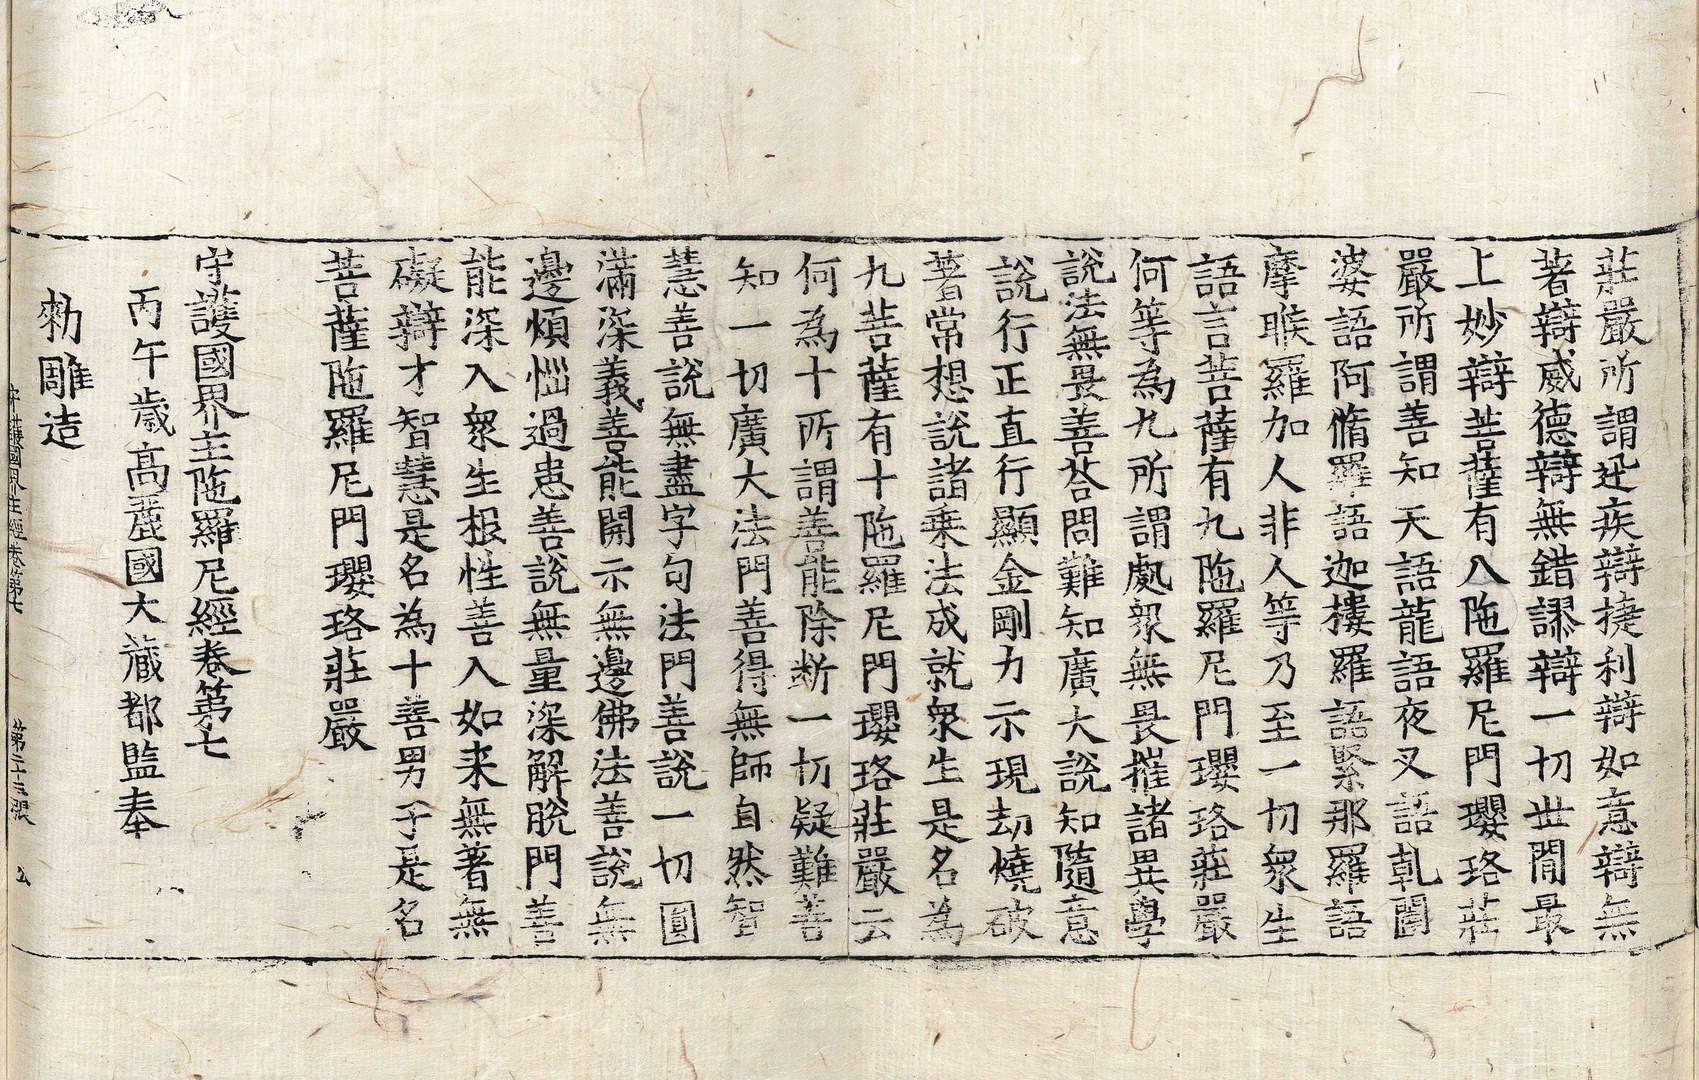 莊嚴所謂迅疾辯捷利辯如意辯無
著辯威德辯無錯謬辯一切世間最
上妙辯菩薩有八陁羅尼門瓔珞莊
嚴所謂善知天語龍語夜叉語乹闥
婆語阿脩羅語迦樓羅語緊那羅語
摩睺羅加人非人等乃至一切衆生
語言菩薩有九陁羅尼門瓔珞莊嚴
何等為九所謂處衆無畏摧諸異學
說法無畏善荅問難知廣大說知隨意
說行正直行顯金剛力示現劫燒破
著常想說諸乗法成就衆生是名為
九菩薩有十陁羅尼門瓔珞莊嚴云
何為十所謂善能除斷一切疑難善
知一切廣大法門善得無師自然智
慧善說無盡字句法門善說一切圓
滿深義善能開示無邊佛法善說無
邊煩惱過患善說無量深解脫門善
能深入衆生根性善入如来無著無
礙辯才智慧是名為十善男子是名
菩薩陁羅尼門瓔珞莊嚴
守護國界主陁羅尼經卷第七
丙午歲高麗國大藏都監奉
勑雕造
守護國界主經卷第七　第二十三張　公